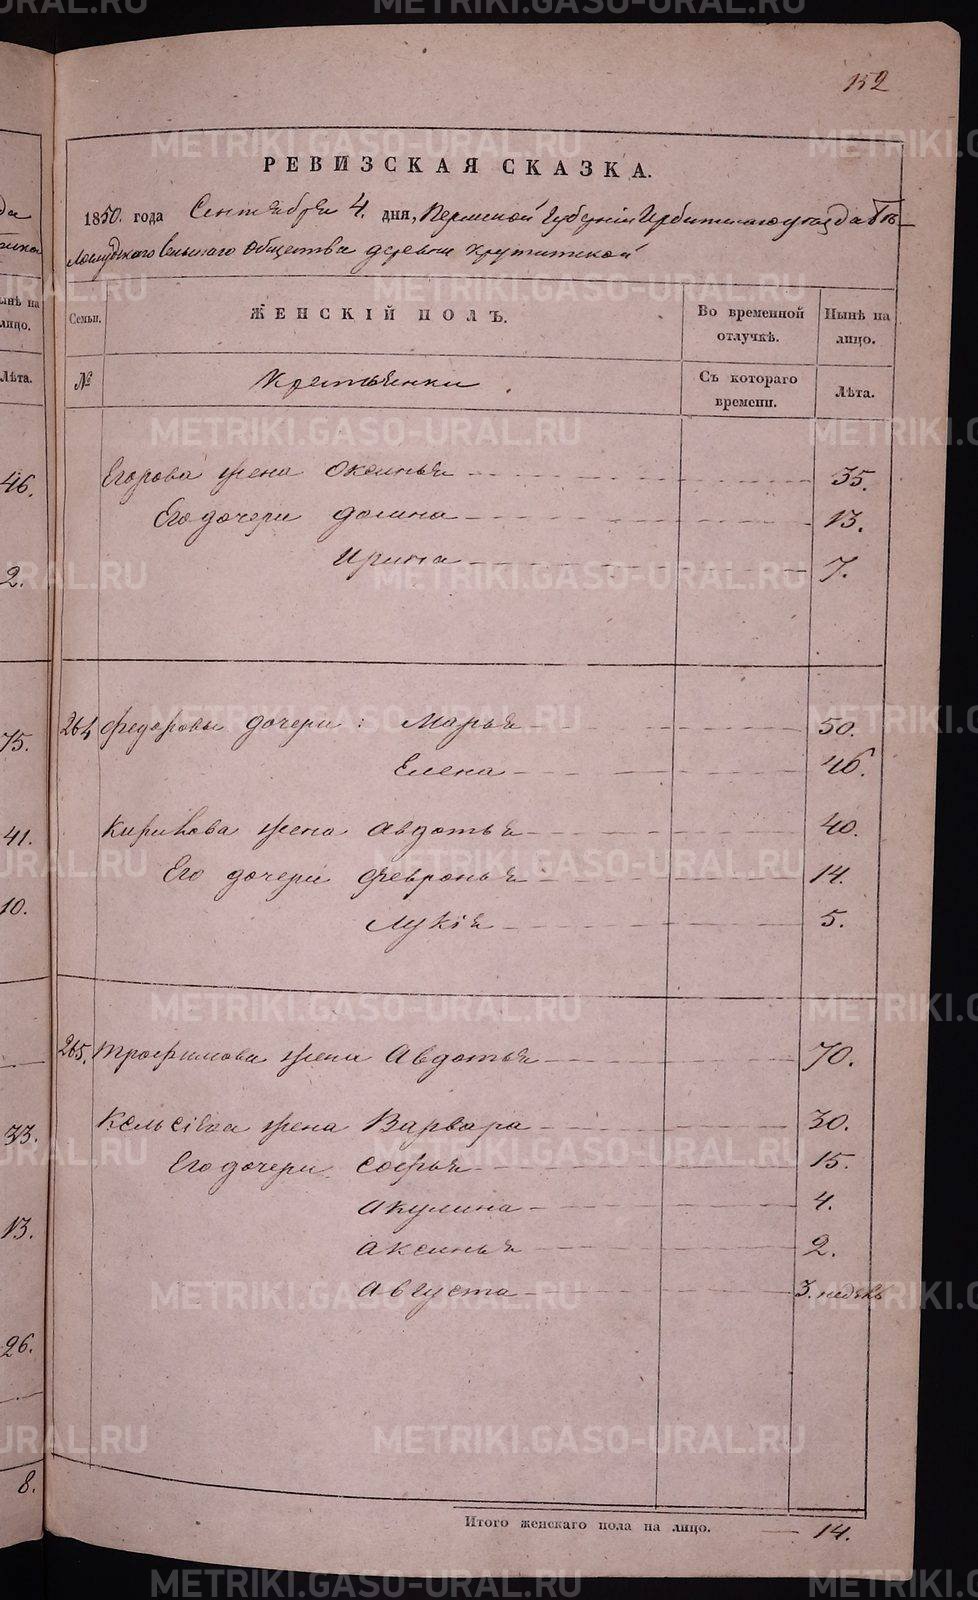 152
РЕВИЗСКАЯ СКАЗКА.
1850. года Сентября 4. дня, Пермской Губернiи Ирбитскаго уезда Бѣ-
лослудскаго сельскаго Общества деревни Крутитской
Семьи. ЖЕНСКІЙ ПОЛЪ. Во временной отлучкѣ. Нынѣ на лицо.
№ Крестьянки Съ котораго времени. Лѣта.
Егорова жена Оксинья 35.
Его дочери Домина 13.
Ирина 7.
264 Федоровы дочери: Марья 50.
Елена 46.
Кирикова жена Авдотья 40.
Его дочери Февронья 14.
Лукiя 5.
265. Трофимова жена Авдотья 70.
Кельсiева жена Варвара 30.
Его дочери Софья 15.
Акулина 4.
Аксинья 2.
Августа 3. недѣль
Итого женскаго пола на лицо. 14.
нынѣ на
лицо.
Лѣта.
46.
2.
75.
41.
10.
33.
13.
26.
8.
METRIKI.GASO-URAL.RU